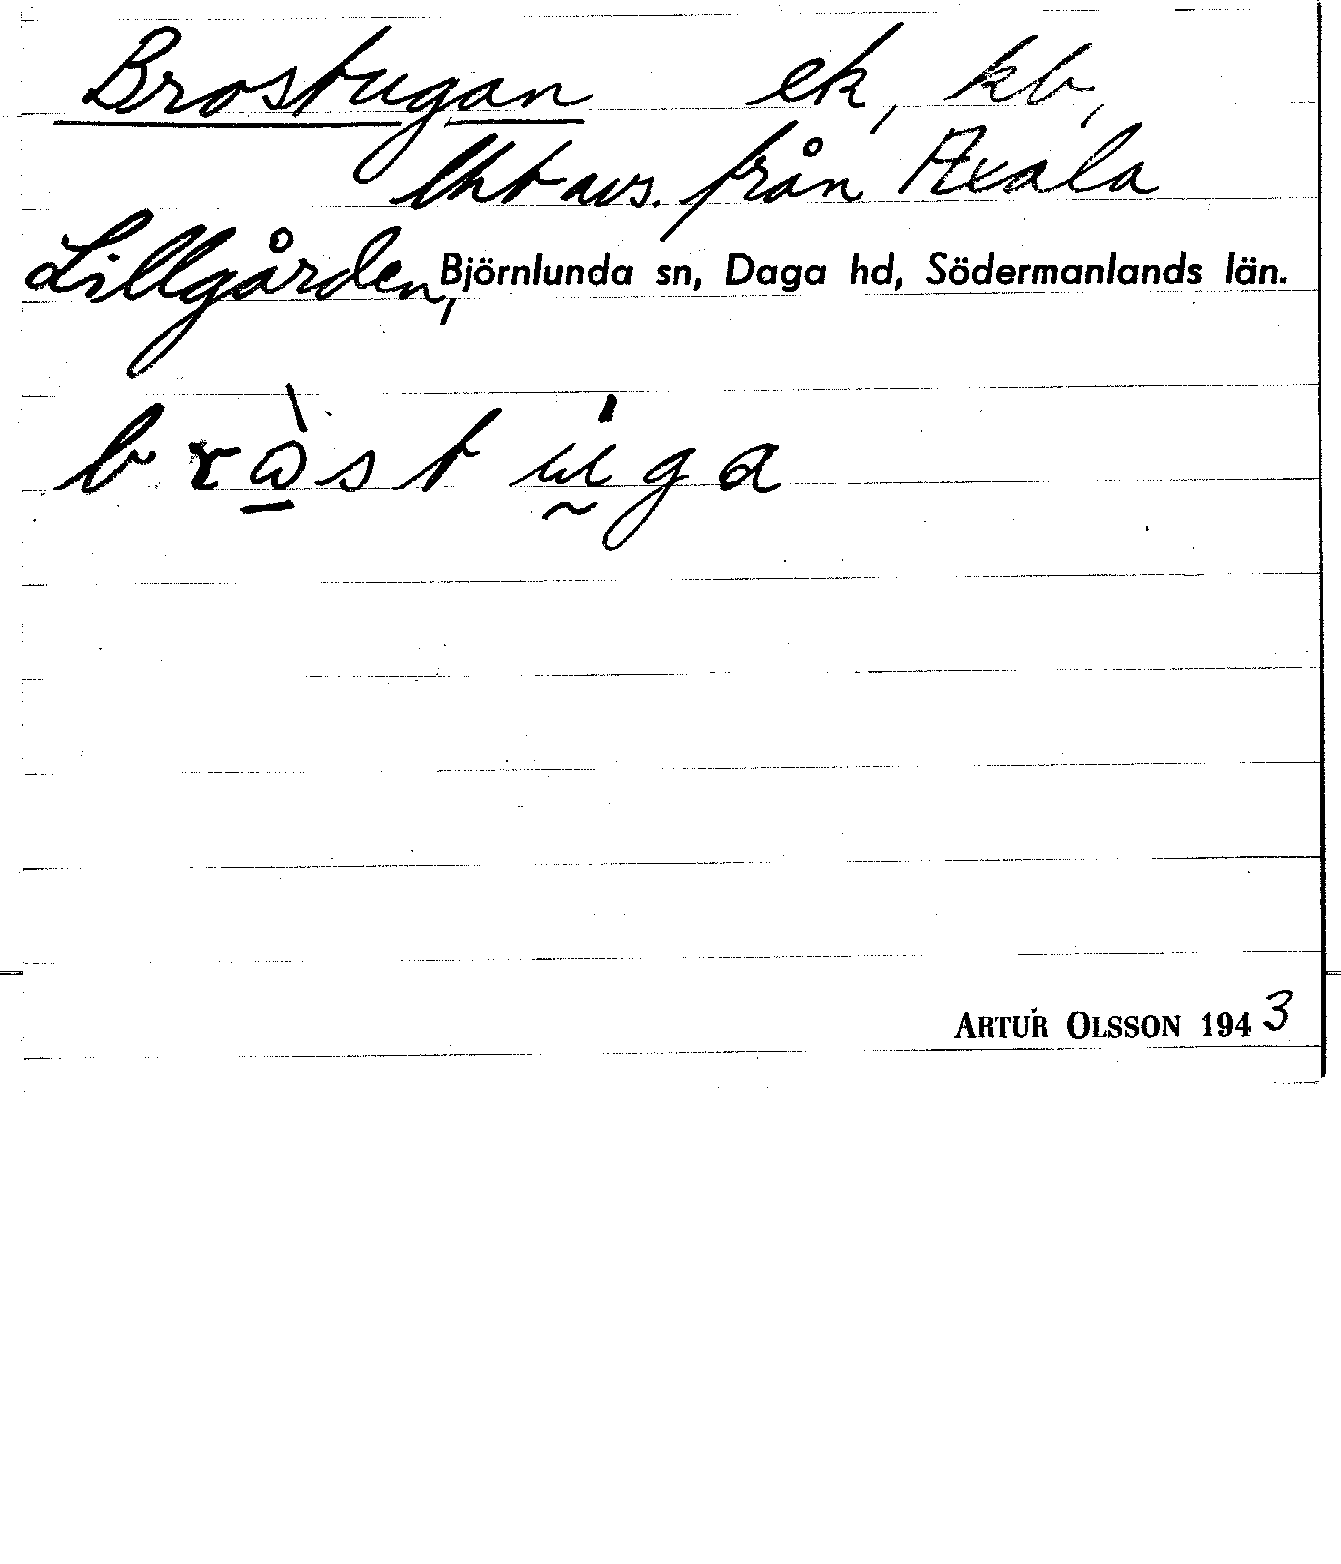 Brostugan ek, kb,
lht avs. från Axala
Lillgården, Björnlunda sn, Daga hd, Södermanlands län.
brå̱̀stṵ̇ga
ARTUR OLSSON 1943